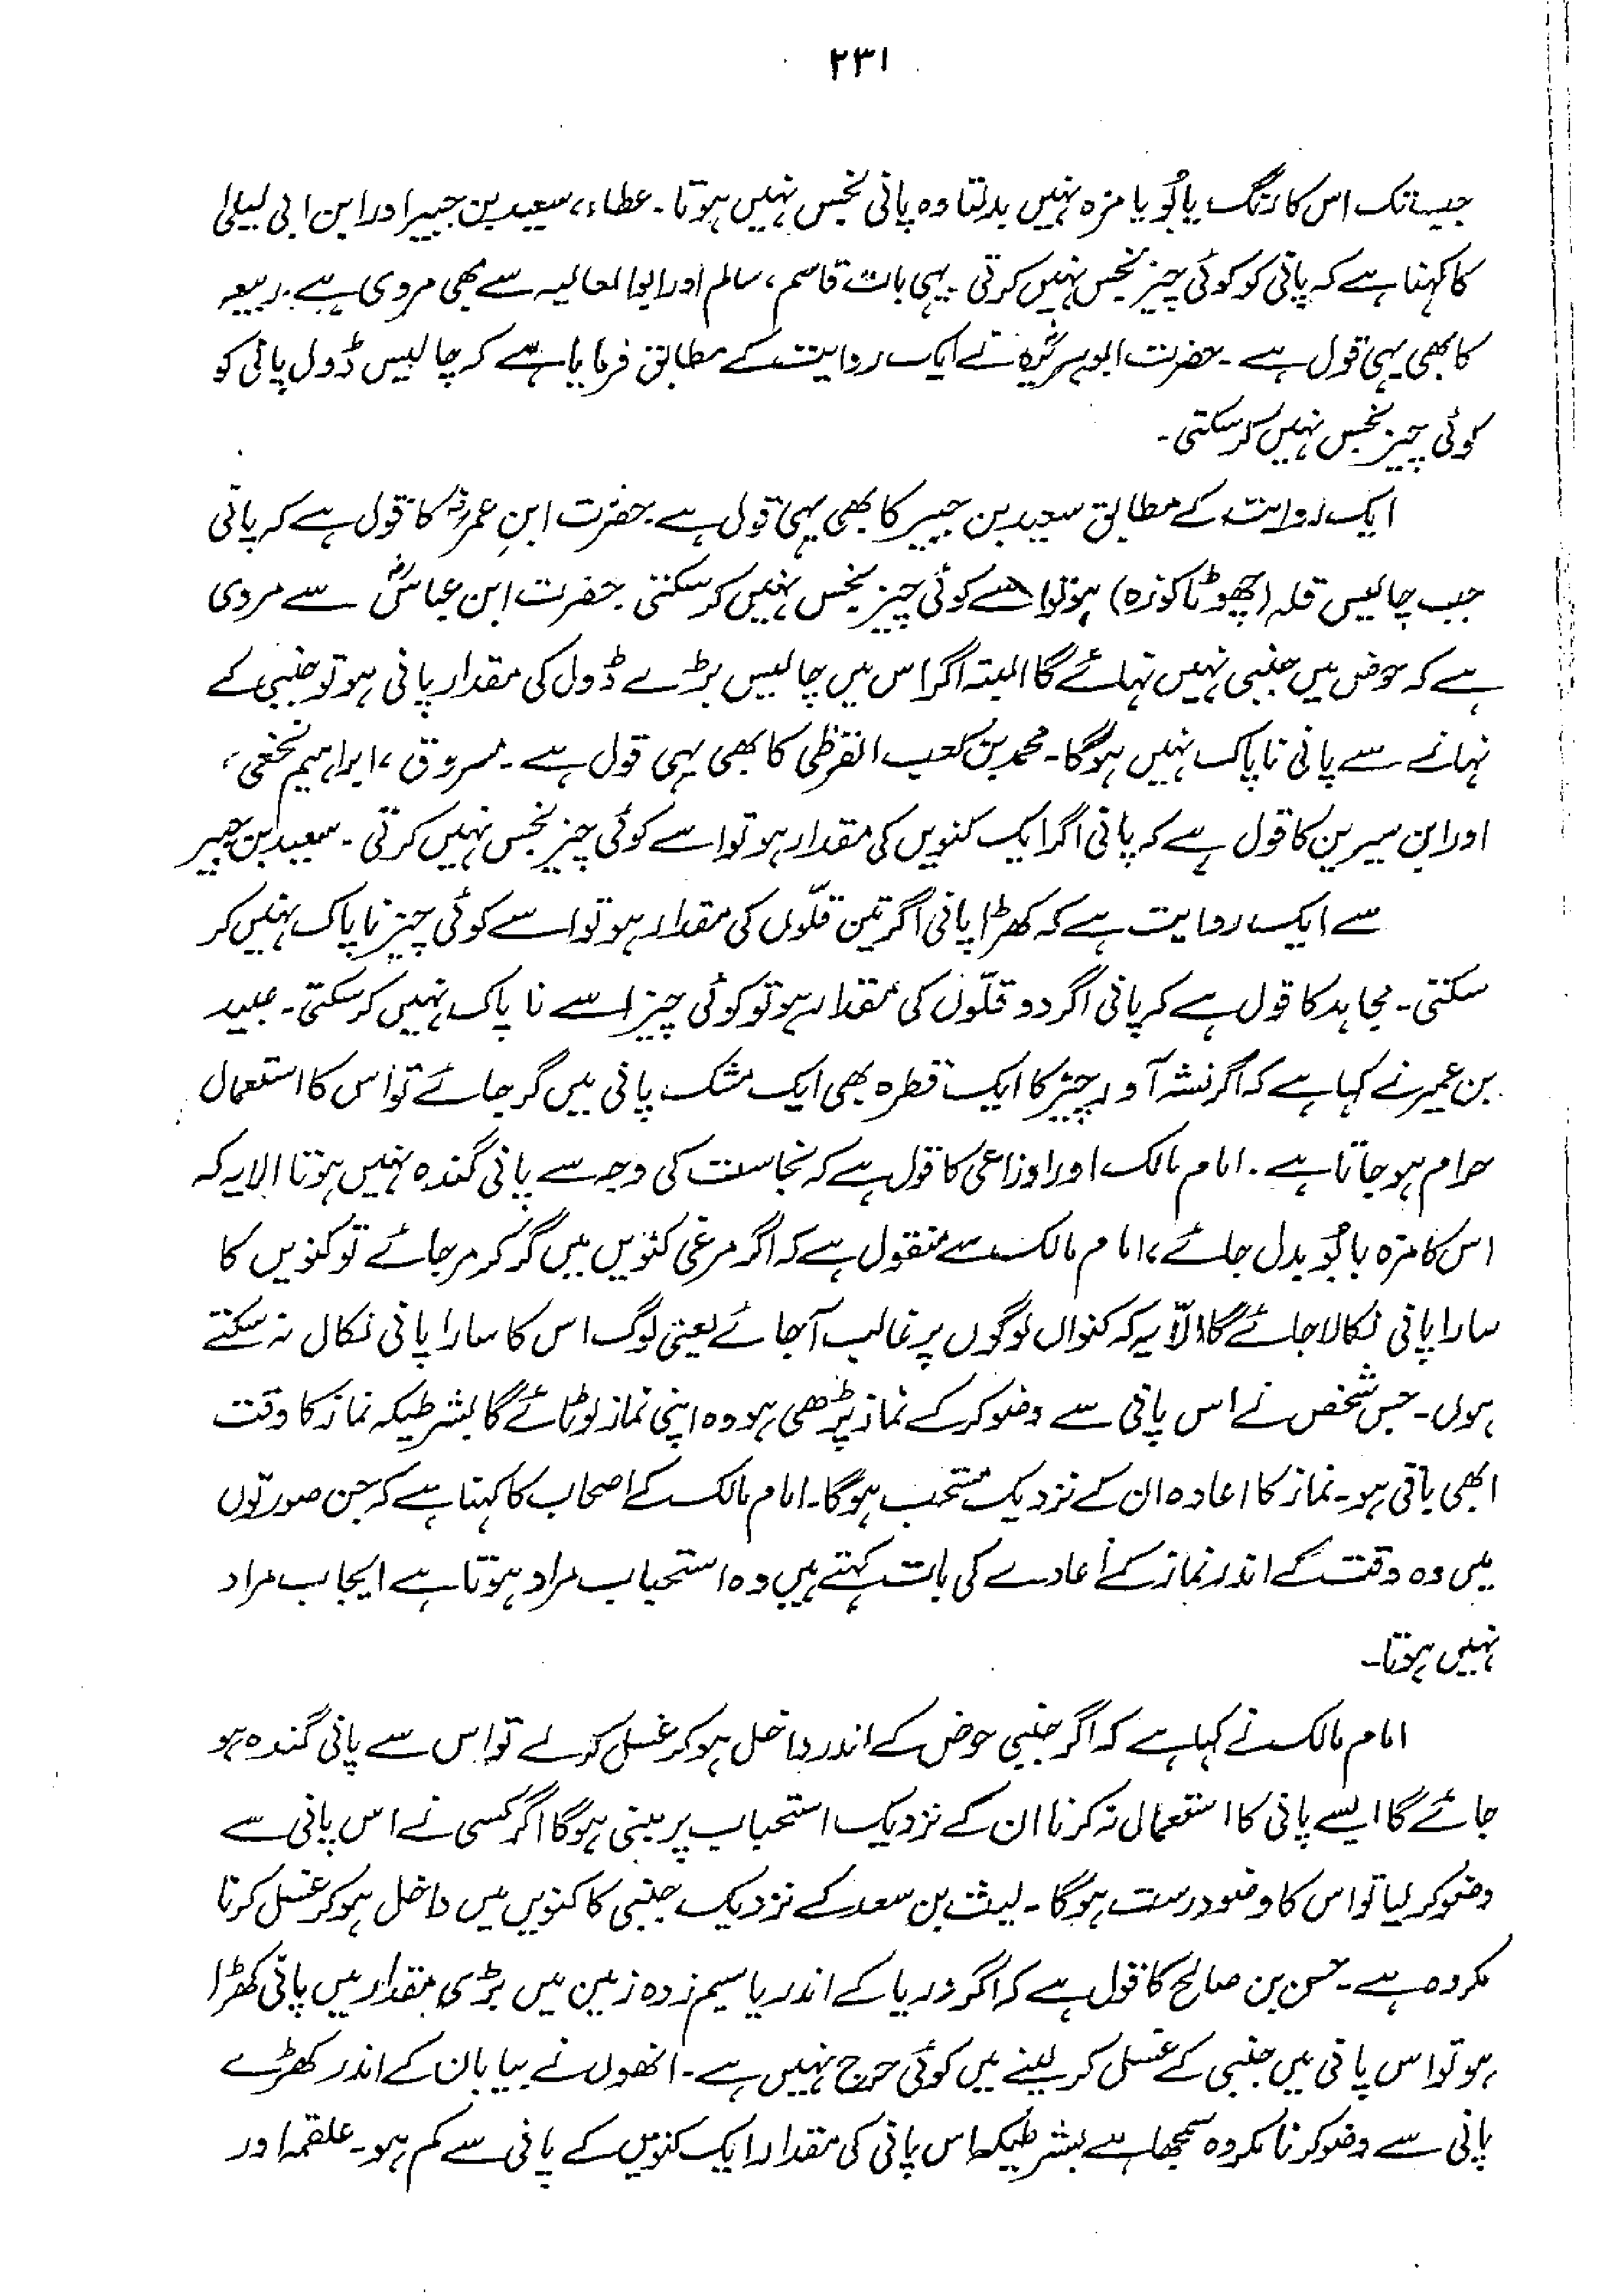 ۲۳۱
جب تک اس کا رنگ یا بُو یا مزہ نہیں بدلتا وہ پانی نجس نہیں ہوتا۔ عطاء، سعید بن جبیر اور ابن ابی لیلیٰ
کا کہنا ہے کہ پانی کو کوئی چیز نجس نہیں کرتی۔ یہی بات قاسم، سالم اور ابوالعالیہ سے بھی مروی ہے۔ ربیعہ
کا بھی یہی قول ہے۔ حضرت ابوہریرہؓ نے ایک روایت کے مطابق فرمایا ہے کہ چالیس ڈول پانی کو
کوئی چیز نجس نہیں کرسکتی۔
ایک روایت کے مطابق سعید بن جبیر کا بھی یہی قول ہے۔ حضرت ابنِ عمرؓ کا قول ہے کہ پانی
جب چالیس قلہ (چھوٹا کوزہ) ہو تو اسے کوئی چیز نجس نہیں کرسکتی۔ حضرت ابن عباسؓ سے مروی
ہے کہ حوض میں جنبی نہیں نہائے گا البتہ اگر اس میں چالیس بڑے ڈول کی مقدار پانی ہو تو جنبی کے
نہانے سے پانی ناپاک نہیں ہوگا۔ محمد بن کعب القرظی کا بھی یہی قول ہے۔ مسروق، ابراہیم نخعی،
اور ابن سیرین کا قول ہے کہ پانی اگر ایک کنویں کی مقدار ہو تو اسے کوئی چیز نجس نہیں کرتی۔ سعید بن جبیر
سے ایک روایت ہے کہ کھڑا پانی اگر تین قلّوں کی مقدار ہو تو اسے کوئی چیز ناپاک نہیں کر
سکتی۔ مجاہد کا قول ہے کہ پانی اگر دو قلّوں کی مقدار ہو تو کوئی چیز اسے ناپاک نہیں کرسکتی۔ عبید
بن عمیر نے کہا ہے کہ اگر نشہ آور چیز کا ایک قطرہ بھی ایک مشک پانی میں گر جائے تو اس کا استعمال
حرام ہو جاتا ہے۔ امام مالک اور اوزاعی کا قول ہے کہ نجاست کی وجہ سے پانی گندہ نہیں ہوتا الا یہ کہ
اس کا مزہ یا بُو بدل جائے، امام مالک سے منقول ہے کہ اگر مرغی کنویں میں گر کر مر جائے تو کنویں کا
سارا پانی نکالا جائے گا الّا یہ کہ کنواں لوگوں پر غالب آجائے یعنی لوگ اس کا سارا پانی نکال نہ سکتے
ہوں۔ جس شخص نے اس پانی سے وضو کرکے نماز پڑھی ہو وہ اپنی نماز لوٹائے گا بشرطیکہ نماز کا وقت
ابھی باقی ہو۔ نماز کا اعادہ ان کے نزدیک مستحب ہوگا۔ امام مالک کے اصحاب کا کہنا ہے کہ جن صورتوں
میں وہ وقت کے اندر نماز کے اعادے کی بات کہتے ہیں وہ استحباب مراد ہوتا ہے ایجاب مراد
نہیں ہوتا۔
امام مالک نے کہا ہے کہ اگر جنبی حوض کے اندر داخل ہو کر غسل کرلے تو اس سے پانی گندہ ہو
جائے گا ایسے پانی کا استعمال نہ کرنا ان کے نزدیک استحباب پر مبنی ہوگا اگر کسی نے اس پانی سے
وضو کر لیا تو اس کا وضو درست ہوگا۔ لیث بن سعد کے نزدیک جنبی کا کنویں میں داخل ہو کر غسل کرنا
مکروہ ہے۔ حسن بن صالح کا قول ہے کہ اگر دریا کے اندر یا سیم زدہ زمین میں بڑی مقدار میں پانی کھڑا
ہو تو اس پانی میں جنبی کے غسل کر لینے میں کوئی حرج نہیں ہے۔ انھوں نے بیابان کے اندر کھڑے
پانی سے وضو کرنا مکروہ سمجھا ہے بشرطیکہ اس پانی کی مقدار ایک کنویں کے پانی سے کم ہو۔ علقمہ اور